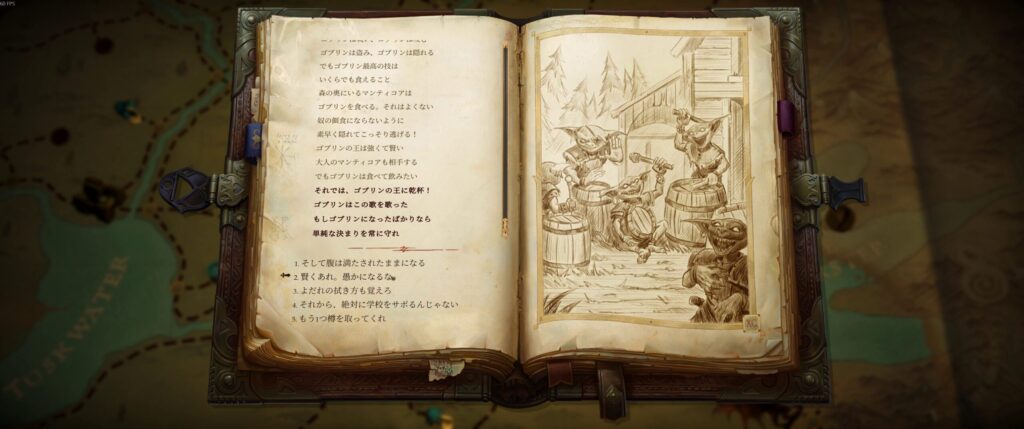 60 FPS
ゴブリンは盗み、ゴブリンは隠れる
でもゴブリン最高の技は
いくらでも食えること
森の奥にいるマンティコアは
ゴブリンを食べる。それはよくない
奴の餌食にならないように
素早く隠れてこっそり逃げる！
ゴブリンの王は強くて賢い
大人のマンティコアも相手する
でもゴブリンは食べて飲みたい
それでは、ゴブリンの王に乾杯！
ゴブリンはこの歌を歌った
もしゴブリンになったばかりなら
単純な決まりを常に守れ
1. そして腹は満たされたままになる
2. 賢くあれ。愚かになるな
3. よだれの拭き方も覚えろ
4. それから、絶対に学校をサボるんじゃない
5. もう1つ樽を取ってくれ
TUSKWATER